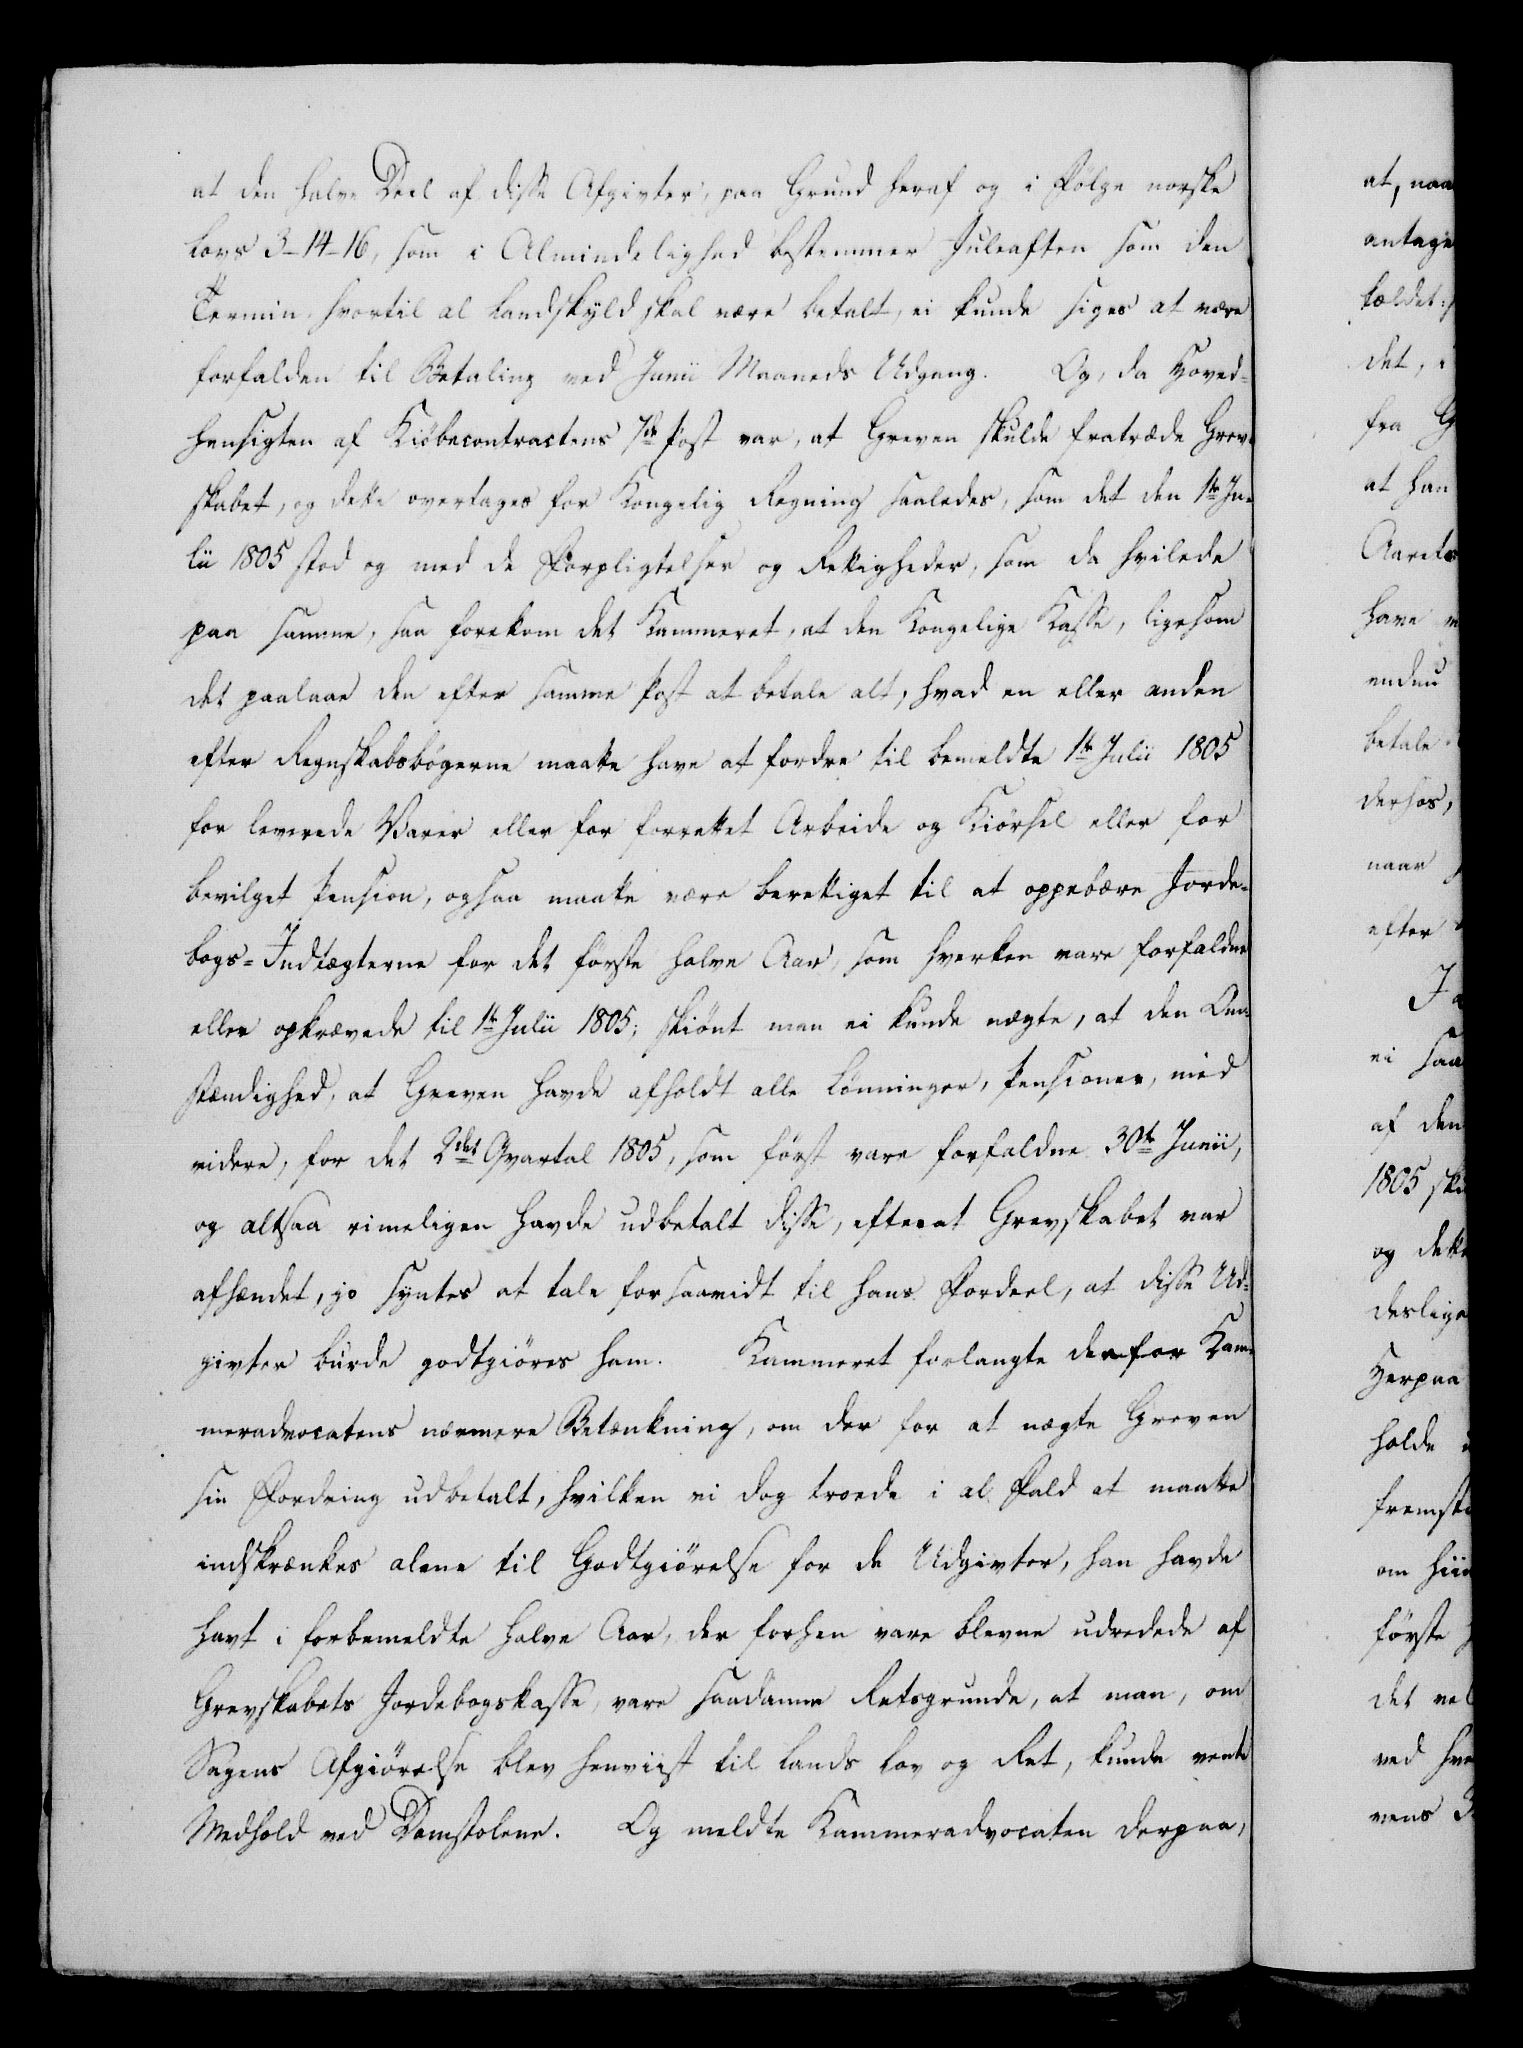 at den halve Deel af disse Afgivter, paa Grund heraf og i Følge norske
Lovs 3-14-16, som i Almindelighed bestemmer Juleaften som den
Termin, hvortil al Landskyld skal være betalt, ei kunde siges at være
forfalden til Betaling ved Junii Maaneds Udgang. Og, da Hoved-
hensigten af Kiöbecontractens 7de Post var, at Greven skulde fratræde Grev-
skabet, og dette overtages for Kongelig Regning saaledes, som det den 1te Ju-
lii 1805 stod og med de Forpligtelser og Rettigheder, som da hvilede
paa samme, saa forekom det Kammeret, at den Kongelige Kasse, ligesom
det paalaae den efter samme Post at betale alt, hvad en eller anden
efter Regnskabsbögerne maatte have at fordre til bemeldte 1te Julii 1805
for leverede Varer eller for forrettet Arbeide og Kiörsel eller for
bevilget Pension, ogsaa maatte være berettiget til at oppebære Jorde-
bogs-Indtægterne for det förste halve Aar, som hverken vare forfaldne
eller opkrævede til 1te Julii 1805; skiönt man ei kunde nægte, at den Om-
stændighed, at Greven havde afholdt alle Lönninger, Pensioner, med
videre, for det 2det Qvartal 1805, som först vare forfaldne 30te Junii,
og altsaa rimeligen havde udbetalt disse, efterat Grevskabet var
afhændet, jo syntes at tale forsaavidt til hans Fordeel, at disse Ud-
givter burde godtgiöres ham. Kammeret forlangte derfor Kam-
meradvocatens nærmere Betænkning, om der for at nægte Greven
sin Fordring udbetalt, hvilken vi dog troede i al Fald at maatte
indskrænkes alene til Godtgiörelse for de Udgivter, han havde
havt i forbemeldte halve Aar, der forhen vare blevne udredede af
Grevskabets Jordebogskasse, vare saadanne Retsgrunde, at man, om
Sagens Afgiörelse blev henviist til Lands Lov og Ret, kunde vente
Medhold ved Domstolene. Og meldte Kammeradvocaten derpaa,
at, naa
antage
kældet
det,
fra G
at han
Aarets
have
endnu
betale
derhos,
naar
efter
Ja
ei saa
af den
1805 sku
og dette
deslige
Herpaa
holde
fremst
om hii
förste
det vel
ved hve
vens